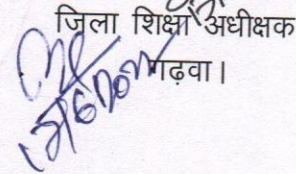 जिला शिक्षा अधीक्षक
गढ़वा।